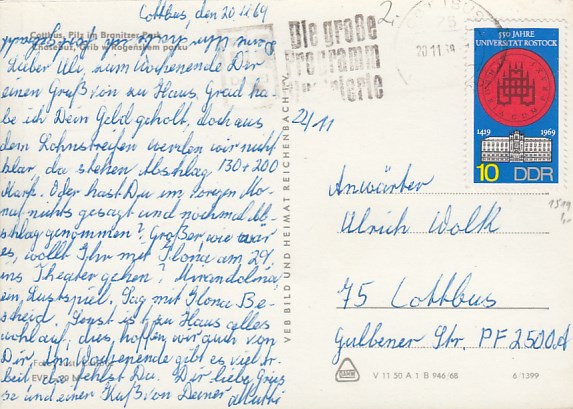 Cottbus, den 20.11.69
Cottbus, Pilz im Branitzer Park
Chośebuz, Grib w Rogeńskem parku
Lieber Uli, zum Wochenende Dir
einen Gruß von zu Haus. Grad ha-
be ich Dein Geld geholt, doch aus
dem Lohnstreifen werden wir nicht
klar, da stehen Abschlag 130 + 200
Mark. Oder hast Du im vorigen Mo-
nat nichts gesagt und nochmal Ab-
schlag genommen? Großer, wie wär
es, wollt Ihr mit Ilona am 29.
ins Theater gehen? Mirandolina,
ein Lustspiel. Sag mit Ilona Be-
scheid. Sonst ist zu Haus alles
wohlauf, dies hoffen wir auch von
Dir. Am Wochenende gibt es viel Ar-
beit, da fehlst Du. Dir liebe Grüs-
se und einen Kuß von Deiner Mutti
EVP
VEB BILD UND HEIMAT REICHENBACH I. V.
Die große
Programm
20.11.69
22/11
550 JAHRE
UNIVERSITÄT ROSTOCK
1419
1969
10 DDR
Anwärter
Ulrich Wolk
75 Cottbus
Gulbener Str. PF 2500 A
V 11 50 A 1 B 946/68
6/1399